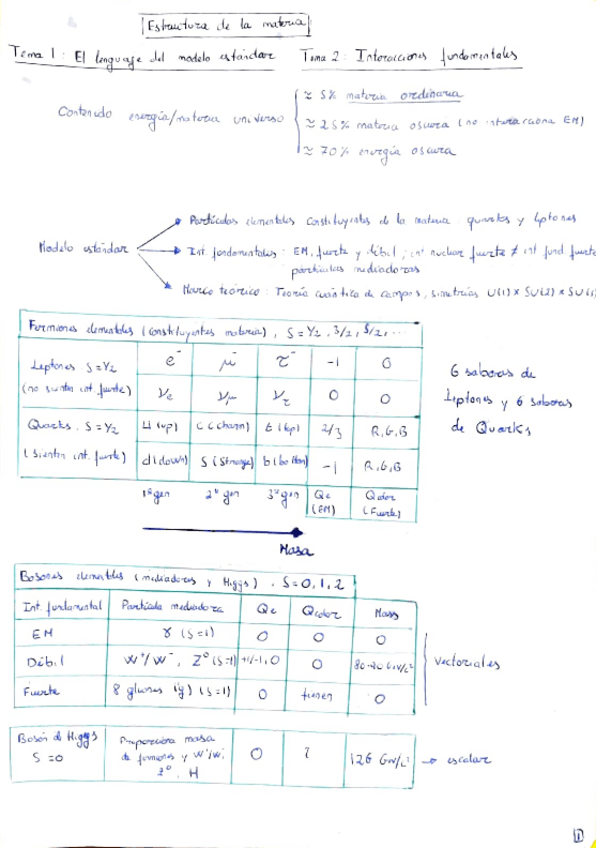 Estructura de la materia
Tema 1: El lenguaje del modelo estándar
Tema 2: Interacciones fundamentales
Contenido energía/materia universo
≈ 5% materia ordinaria
≈ 25% materia oscura (no interacciona EM)
≈ 70% energía oscura
Modelo estándar
Partículas elementales constituyentes de la materia: quarks y leptones
Int. fundamentales: EM, fuerte y débil; int nuclear fuerte ≠ int fund fuerte
partículas mediadoras
Marco teórico: Teoría cuántica de campos, simetrías U(1) x SU(2) x SU(
Fermiones elementales (constituyentes materia), S = 1/2, 3/2, 5/2, ...
Leptones S = 1/2 e⁻ μ⁻ τ⁻ -1 0
(no sienten int. fuerte) νe νμ ντ 0 0
Quarks. S = 1/2 u (up) c (charm) t (top) 2/3 R, G, B
(sienten int. fuerte) d (down) s (strange) b (bottom) -1 R, G, B
1ª gen 2ª gen 3ª gen Qe (EM) Qcolor (Fuerte)
Masa
6 sabores de
leptones y 6 sabores
de Quarks
Bosones elementales (mediadores y Higgs). S = 0, 1, 2
Int. fundamental Partícula mediadora Qe Qcolor Mass
EM γ (S=1) 0 0 0
Débil W⁺/W⁻, Z⁰ (S=1) +1/-1, 0 0 80-90 GeV/c²
Fuerte 8 gluones (g) (S=1) 0 tienen 0
Vectoriales
Bosón de Higgs
S = 0
Proporciona masa
de fermiones y W⁺/W⁻
Z⁰. H
0
126 GeV/c² → escalar
1